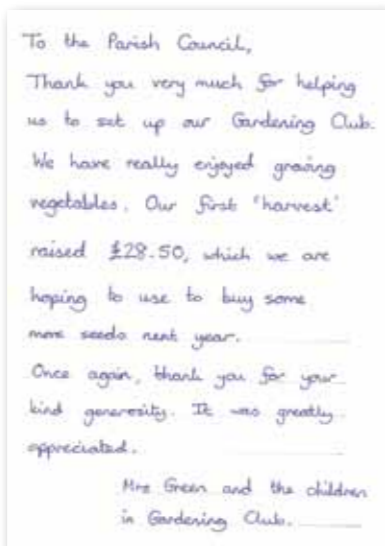 To the Parish Council,
Thank you very much for helping
us to set up our Gardening Club.
We have really enjoyed growing
vegetables. Our first 'harvest'
raised £28.50, which we are
hoping to use to buy some
more seeds next year.
Once again, thank you for your
kind generosity. It was greatly
appreciated.
Mrs Green and the children
in Gardening Club.